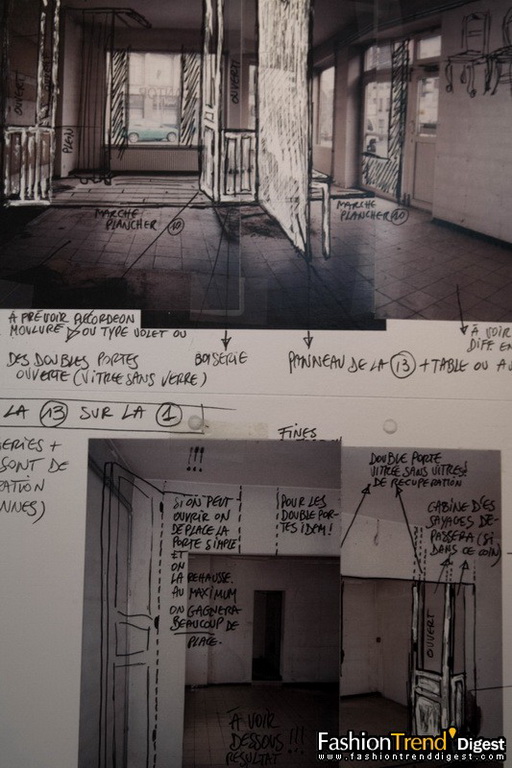 OUVERT
PLAN
OUVERT
MARCHE
PLANCHER 10
MARCHE
PLANCHER 10
A PREVOIR ACCORDEON
MOULURE OU TYPE VOLET OU
DES DOUBLES PORTES
OUVERTE (VITREE SANS VERRE)
BOISERIE
PANNEAU DE LA 13 + TABLE OU
À VOIR
LA 13 SUR LA 1
ERIES +
SONT DE
ATION
NNES)
FINES
!!!
SI ON PEUT
OUVRIR ON
DEPLACE LA
PORTE SIMPLE
ET
ON
LA REHAUSSE.
AU MAXIMUM
ON GAGNERA
BEAUCOUP DE
PLACE.
POUR LES
DOUBLE POR-
TES IDEM!
À VOIR
DESSOUS !!!
RESULTAT
DOUBLE PORTE
VITREE SANS VITRES!
DE RECUPERATION
CABINE D'ES
SAYAGES DE-
PASSERA (SI
DANS CE COIN)
OUVERT
FashionTrend Digest
www.fashiontrenddigest.com